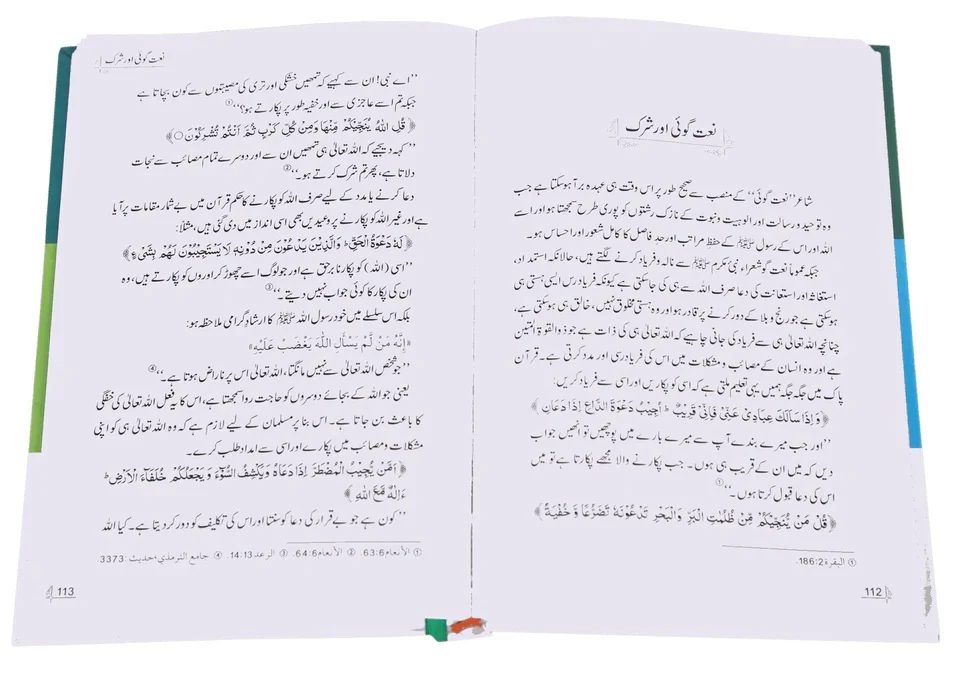 نعت گوئی اور شرک
شاعر ’’نعت گوئی‘‘ کے منصب سے صحیح طور پر اس وقت ہی عہدہ برآ ہوسکتا ہے جب
وہ توحید و رسالت اور الوہیت و نبوت کے نازک رشتوں کو پوری طرح سمجھتا ہو اور اسے
اللہ اور اس کے رسول ﷺ کے حفظ مراتب اور حد فاصل کا کامل شعور اور احساس ہو۔
جبکہ عموماً نعت گو شعراء، نبیٔ مکرم ﷺ سے نالہ و فریاد کرنے لگتے ہیں، حالانکہ استمداد،
استغاثہ اور استعانت کی دعا صرف اللہ سے ہی کی جاسکتی ہے کیونکہ فریاد رس ایسی ہستی ہی
ہوسکتی ہے جو رنج و بلا کے دور کرنے پر قادر ہو اور وہ ہستی مخلوق نہیں، خالق ہی ہوسکتی ہے،
چنانچہ اللہ تعالیٰ ہی سے فریاد کی جانی چاہیے کہ اللہ تعالیٰ ہی کی ذات ہے جو ذو القوۃ المتین
ہے اور وہ انسان کے مصائب و مشکلات میں اس کی فریاد رسی اور مدد کرتی ہے۔ قرآن
پاک میں جگہ جگہ ہمیں یہی تعلیم ملتی ہے کہ اسی کو پکاریں اور اسی سے فریاد کریں:
﴿وَإِذَا سَأَلَكَ عِبَادِي عَنِّي فَإِنِّي قَرِيبٌ ۖ أُجِيبُ دَعْوَةَ الدَّاعِ إِذَا دَعَانِ﴾
’’اور جب میرے بندے آپ سے میرے بارے میں پوچھیں تو انھیں جواب
دیں کہ میں ان کے قریب ہی ہوں۔ جب پکارنے والا مجھے پکارتا ہے تو میں
اس کی دعا قبول کرتا ہوں۔‘‘①
﴿قُلْ مَنْ يُّنَجِّيْكُمْ مِّنْ ظُلُمٰتِ الْبَرِّ وَالْبَحْرِ تَدْعُوْنَهٗ تَضَرُّعًا وَّخُفْيَةً﴾
① البقرة 186:2.
112
نعت گوئی اور شرک
’’اے نبی! ان سے کہیے کہ تمھیں خشکی اور تری کی مصیبتوں سے کون بچاتا ہے
جبکہ تم اسے عاجزی سے اور خفیہ طور پر پکارتے ہو؟‘‘①
﴿قُلِ اللّٰهُ يُنَجِّيْكُمْ مِّنْهَا وَمِنْ كُلِّ كَرْبٍ ثُمَّ اَنْتُمْ تُشْرِكُوْنَ○﴾
’’کہہ دیجیے کہ اللہ تعالیٰ ہی تمھیں ان سے اور دوسرے تمام مصائب سے نجات
دلاتا ہے، پھر تم شرک کرتے ہو۔‘‘②
دعا کرنے یا مدد کے لیے صرف اللہ کو پکارنے کا حکم قرآن میں بے شمار مقامات پر آیا
ہے اور غیر اللہ کو پکارنے پر وعیدیں بھی اسی انداز میں دی گئی ہیں، مثلاً:
﴿لَهٗ دَعْوَةُ الْحَقِّ ؕ وَالَّذِيْنَ يَدْعُوْنَ مِنْ دُوْنِهٖ لَا يَسْتَجِيْبُوْنَ لَهُمْ بِشَيْءٍ﴾
’’اسی (اللہ) کو پکارنا برحق ہے اور جو لوگ اسے چھوڑ کر اوروں کو پکارتے ہیں، وہ
ان کی پکار کا کوئی جواب نہیں دیتے۔‘‘③
بلکہ اس سلسلے میں خود رسول اللہ ﷺ کا ارشاد گرامی ملاحظہ ہو:
«إِنَّهُ مَنْ لَّمْ يَسْأَلِ اللّٰهَ يَغْضَبْ عَلَيْهِ»
’’جو شخص اللہ تعالیٰ سے نہیں مانگتا، اللہ تعالیٰ اس پر ناراض ہوتا ہے۔‘‘④
یعنی جو اللہ کے بجائے دوسروں کو حاجت روا سمجھتا ہے، اس کا یہ فعل اللہ تعالیٰ کی خفگی
کا باعث بن جاتا ہے۔ اس بنا پر مسلمان کے لیے لازم ہے کہ وہ اللہ تعالیٰ ہی کو اپنی
مشکلات و مصائب میں پکارے اور اسی سے امداد طلب کرے۔
﴿اَمَّنْ يُّجِيْبُ الْمُضْطَرَّ اِذَا دَعَاهُ وَيَكْشِفُ السُّوْٓءَ وَيَجْعَلُكُمْ خُلَفَآءَ الْاَرْضِ ؕ
ءَاِلٰهٌ مَّعَ اللّٰهِ﴾
’’کون ہے جو بے قرار کی دعا کو سنتا اور اس کی تکلیف کو دور کر دیتا ہے۔ کیا اللہ
① الأنعام 63:6. ② الأنعام 64:6. ③ الرعد 14:13. ④ جامع الترمذي، حديث: 3373.
113